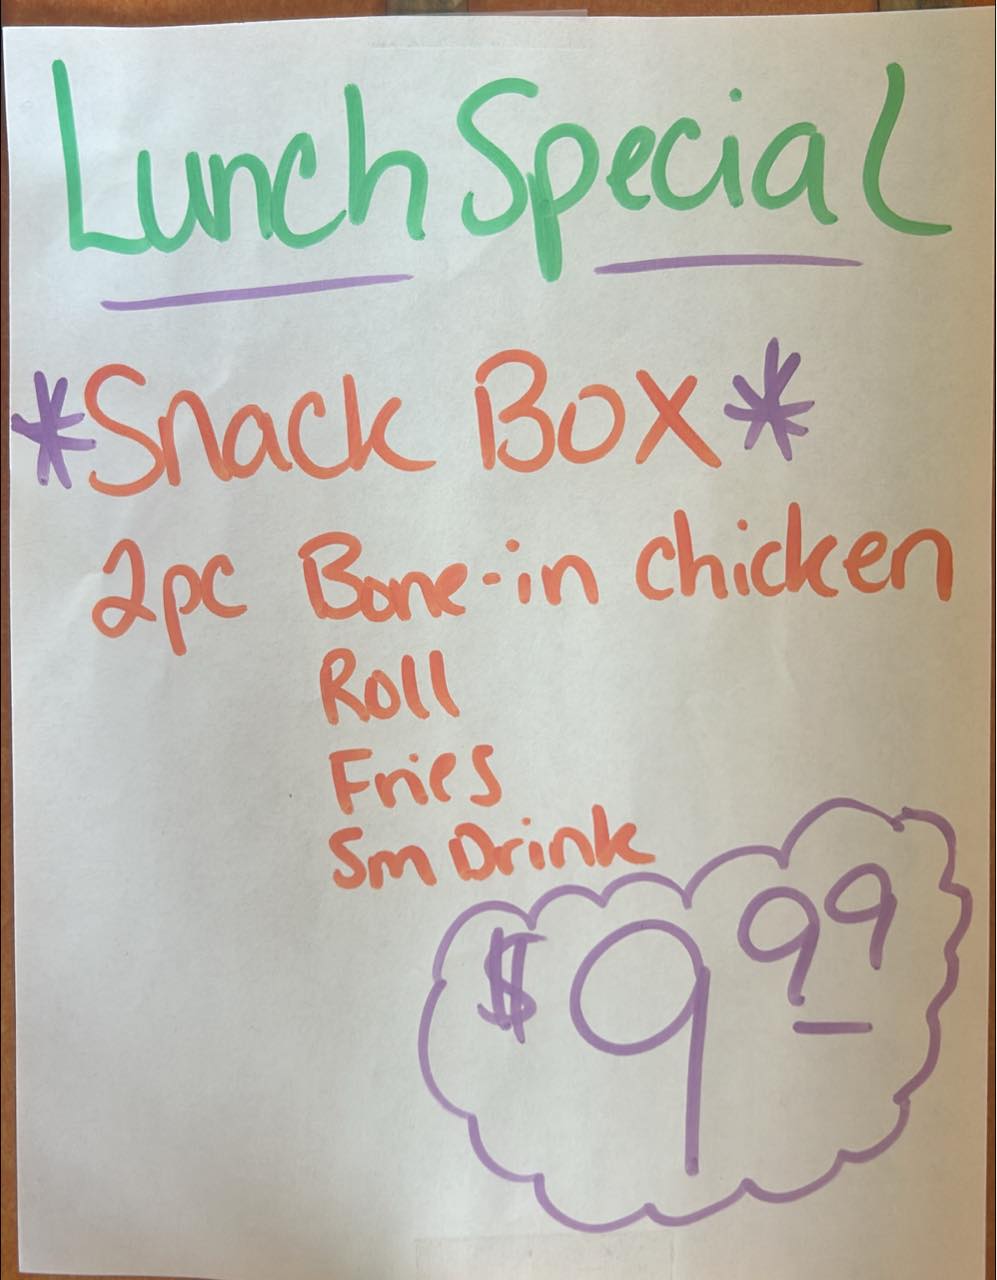 Lunch Special
*Snack Box*
2pc Bone-in chicken
Roll
Fries
Sm Drink
$9.99